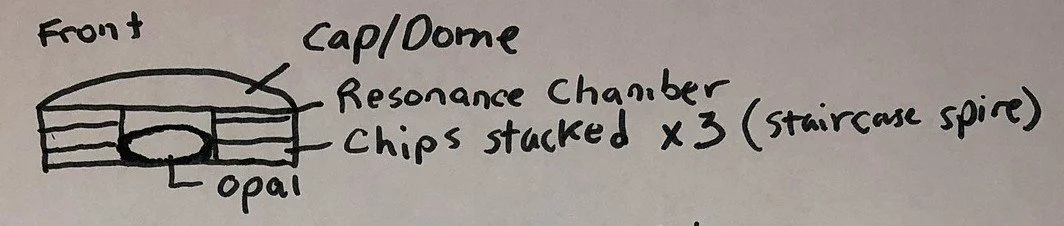 Front
Cap/Dome
Resonance Chamber
Chips stacked x3 (staircase spire)
opal